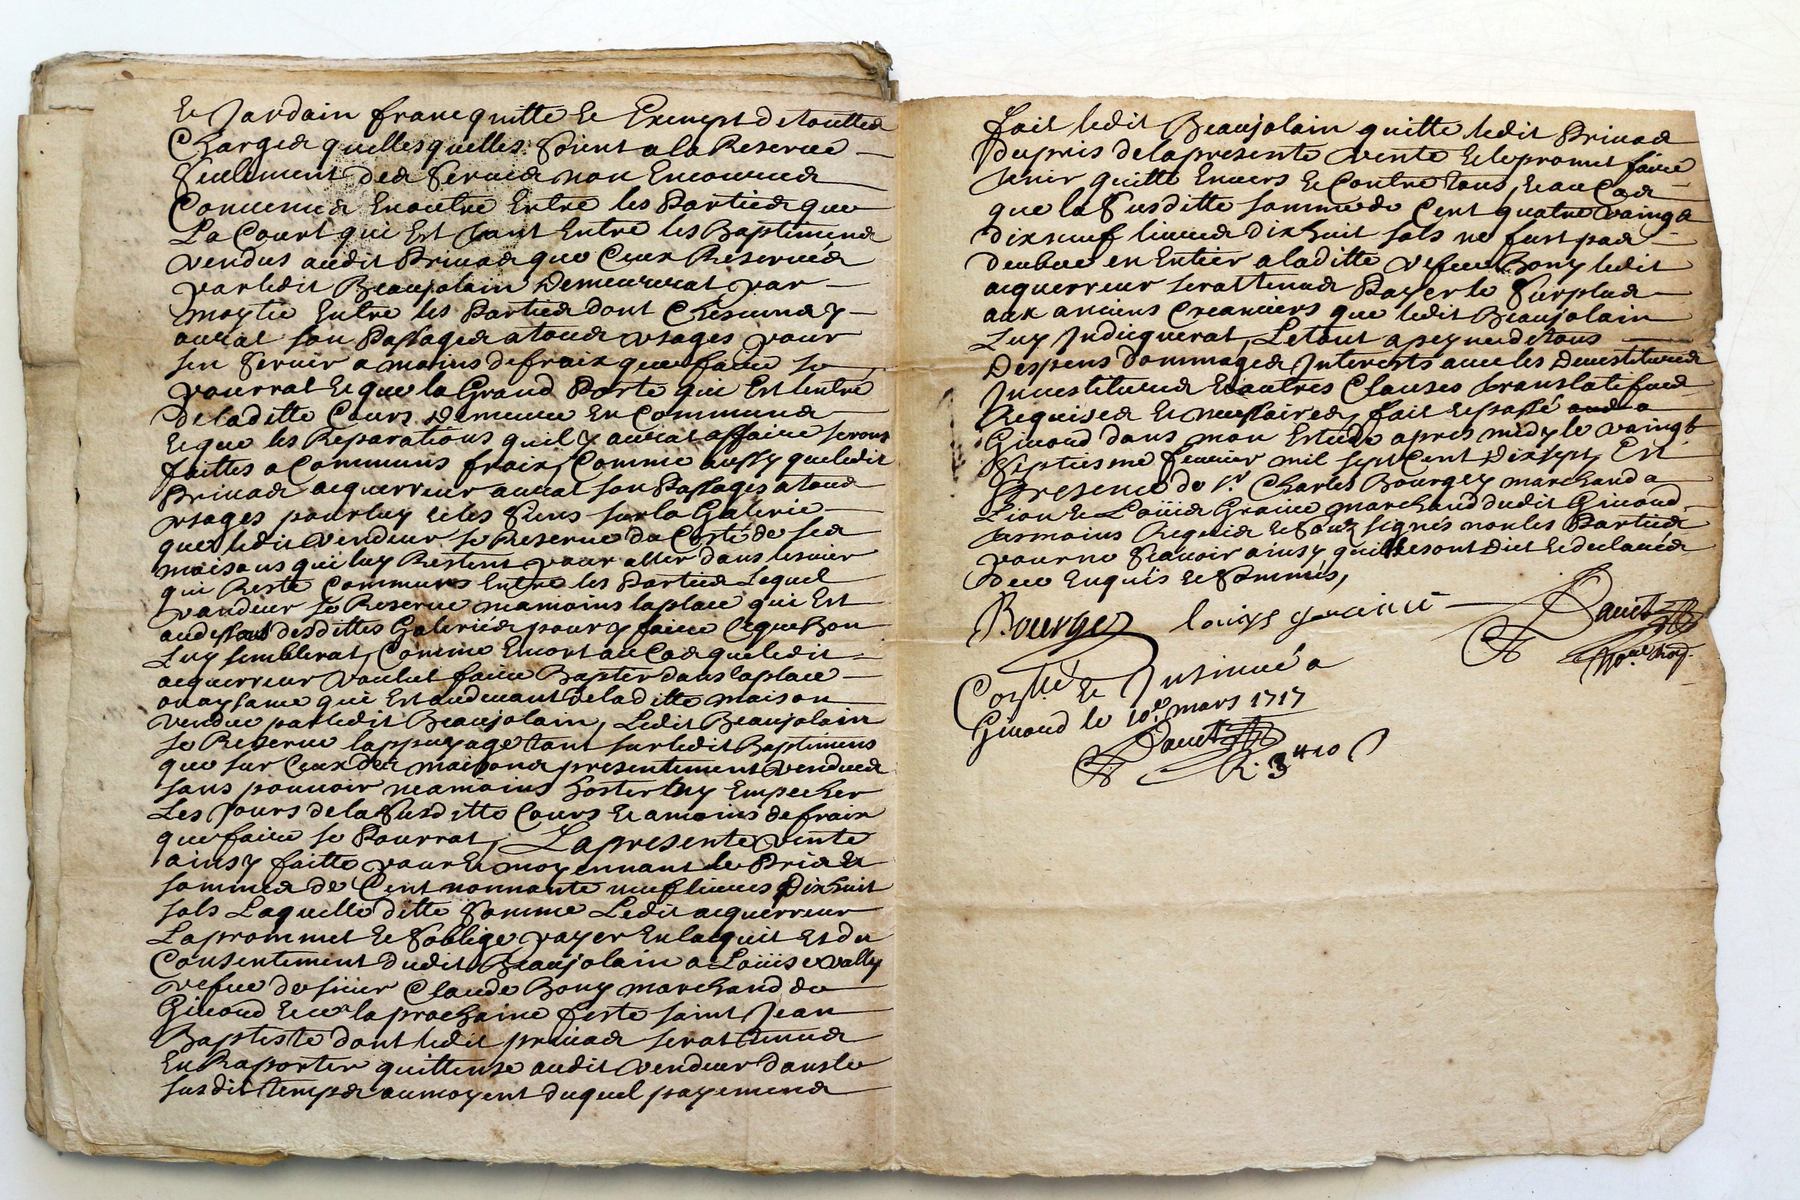 et Jardain franc quitte et Exempt de touttes
Charges quelles quelles soient a la Reserve
seulement des servies non Encourues
Convenus Enoutre Entre les Parties que
La Court qui Est Joint Entre les Baptimens
vendus audit Privas que Ceux Reservés
par ledit Beaujolain Demeurerat par
moytie Entre les Parties dont Chescune y
aurat son Passages a tous usages pour
sen servir a moins de fraix que faire se
pourrat et que la Grand Porte qui Est Entré
de laditte Cours Demeure En Commune
et que les Reparations quil y aurat affaire seront
faittes a Communs fraix, Comme aussy que ledit
Privas acquerreur aurat son Passages a tous
usages pour luy et les siens sur la Galerie
que ledit vendeur se Reserve du Costé de ses
maisons qui luy Restent pour aller dans
qui Reste Commune Entre les Parties Lequel
vandeur se Reserve neamoins la place qui Est
au dessous desdittes Galeries pour y faire ceque Bon
Luy semblerat, Comme Encort au Cas que ledit
acquerreur voulut faire Baptir dans la place
qui Est au devant de laditte maison
vendue par ledit Beaujolain, Ledit Beaujolain
se Reserve lappuyage tant sur ledit Baptimens
que sur Ceux des maisons presentement vendues
sans pouvoir neamoins hoster luy Empecher
Les Jours de la susditte Cours et a moins de fraix
que faire se Pourrat, La presente vente
ainsy faitte pour et moyennant le Prix et
sommes de Cent nonnante neuf livres Dixhuit
sols Laquelle ditte somme Ledit acquerreur
La prommet et soblige payer En lacquit Et du
Consentement dudit Beaujolain a Loüise vally
vefue de sieur Claude Bony marchand de
Givord la prochaine feste saint Jean
Baptiste dont ledit privas serat tenus
En Raporter quittense audit vendeur dans le
susdit temps au moyent duquel payemens
fait ledit Beaujolain quitte ledit Privas
du pris de la presente vente et le promet faire
tenir quitte Envers et Contre tous, et au Cas
que la susditte somme de Cent quatre vaingts
dix neuf livres dix huit sols ne fust pas
deubue en Entier a laditte vefue Bony ledit
acquerreur serat tenus Payer le surplus
aux anciens Creanciers que ledit Beaujolain
Luy Indicquerat, Le tout a peyne de tous
Despens dommages Interests avec les Devestitures
Investitures Et autres Clauses translatifues
Requises et necessaires, fait et passé a
Givord dans mon Estude apres midy le vaingt
septiesme fevrier mil sept Cent Dixsept, Est
Presence de Sr. Charles Bourgey marchand a
Lion et Loüis marchand dudit Givord
tesmoins Requis et Soub signés non les Parties
pour ne scavoir ainsy quilles ont Dict et declarés
de ce Enquis et sommés,
Bourgey Louys
Davet
No.re Roy.
et Insinué a
Givord le 10e. mars 1717
Davet
R. 3# 10 s